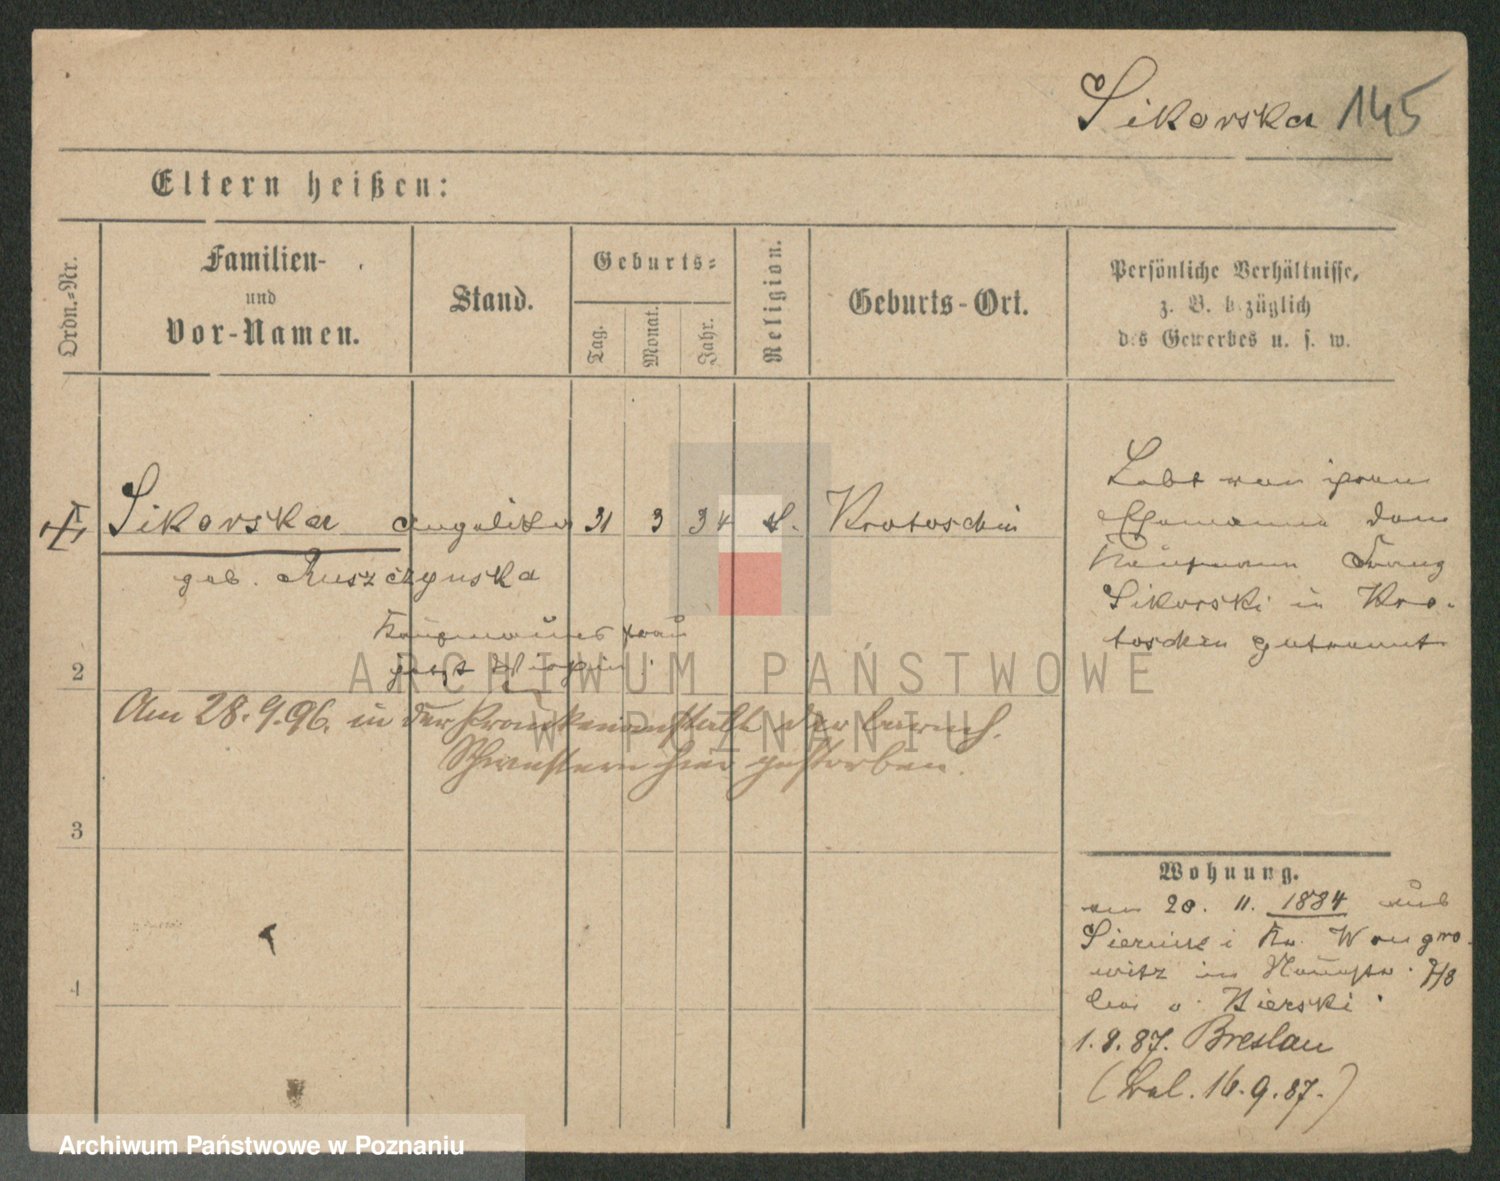 Sikorska 145
Eltern heißen:
Ordn.-Nr.
Familien-
und
Vor-Namen.
Stand.
Geburts-
Tag.
Monat.
Jahr.
Religion.
Geburts-Ort.
Persönliche Verhältnisse,
z. B. bezüglich
des Gewerbes u. s. w.
Sikorska Angelika 31 3 34 Krotoschin
geb. Ruszczynska
Kaufmannsfrau
jetzt
2
Am 28.9.96. in der Krankenanstalt der barmh.
Schwestern hier gestorben.
3
4
Lebt von ihrem
Ehemanne dem
Kaufmann Franz
Sikorski in Kro-
toschin getrennt
Wohnung.
am 20. 11. 1884 aus
Siernik i Kr. Wongro-
witz
bei v. Bierski
1.9.87. Breslau
16.9.87.)
ARCHIWUM PAŃSTWOWE
W POZNANIU
Archiwum Państwowe w Poznaniu